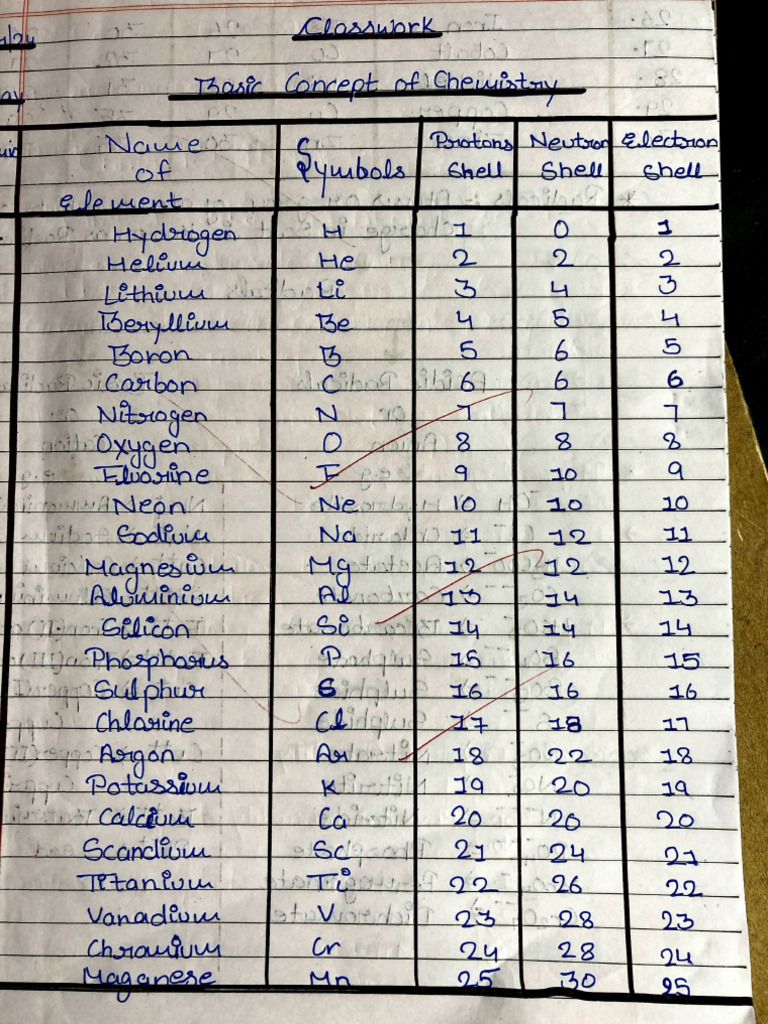 Classwork
Basic Concept of Chemistry
Name of Element Symbols Protons Shell Neutron Shell Electron Shell
Hydrogen H 1 0 1
Helium He 2 2 2
Lithium Li 3 4 3
Beryllium Be 4 5 4
Boron B 5 6 5
Carbon C 6 6 6
Nitrogen N 7 7 7
Oxygen O 8 8 8
Fluorine F 9 10 9
Neon Ne 10 10 10
Sodium Na 11 12 11
Magnesium Mg 12 12 12
Aluminium Al 13 14 13
Silicon Si 14 14 14
Phosphorus P 15 16 15
Sulphur S 16 16 16
Chlorine Cl 17 18 17
Argon Ar 18 22 18
Potassium K 19 20 19
Calcium Ca 20 20 20
Scandium Sc 21 24 21
Titanium Ti 22 26 22
Vanadium V 23 28 23
Chromium Cr 24 28 24
Maganese Mn 25 30 25